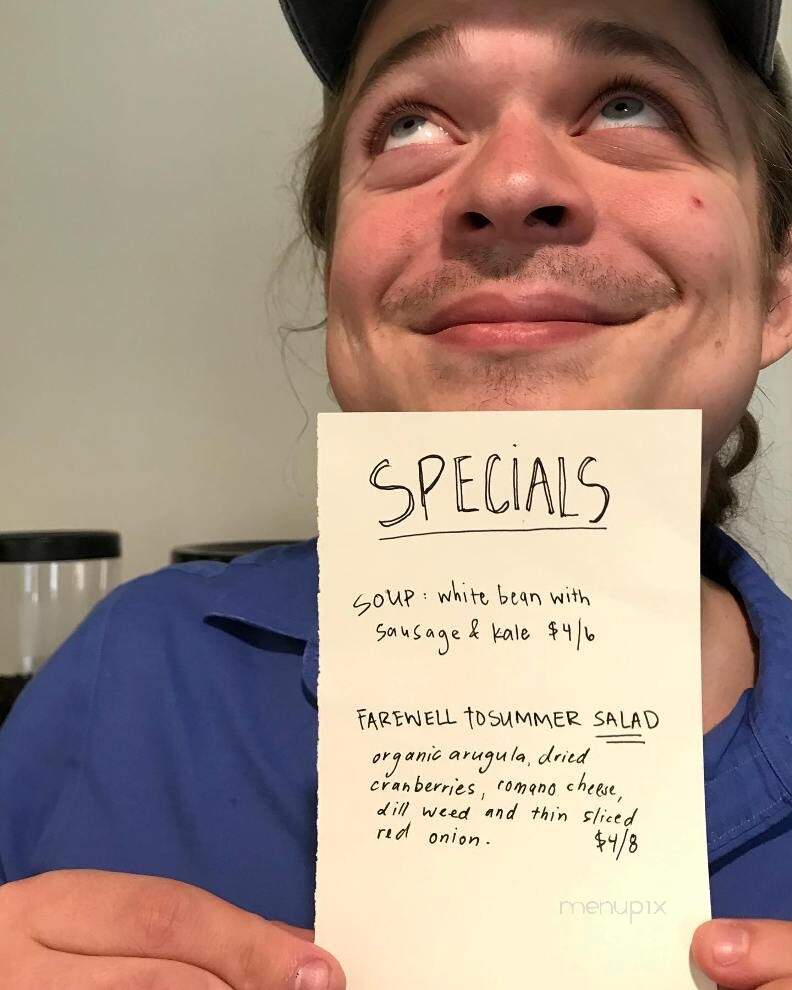 SPECIALS
SOUP: white bean with
sausage & kale $4/6
FAREWELL TO SUMMER SALAD
organic arugula, dried
cranberries, romano cheese,
dill weed and thin sliced
red onion. $4/8
menupix